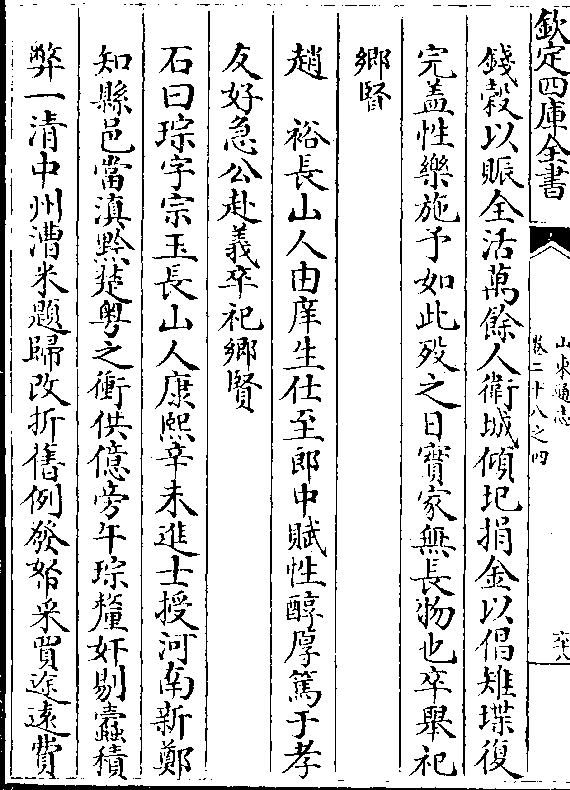 欽定四庫全書
山東通志
卷二十八之四
六十八
錢穀以賑全活萬餘人衛城傾圮捐金以倡雉堞復
完盖性樂施予如此殁之日實家無長物也卒舉祀
鄉賢
趙　裕長山人由庠生仕至郎中賦性醇厚篤于孝
友好急公赴義卒祀鄉賢
石曰琮字宗玉長山人康熙辛未進士授河南新鄭
知縣邑當滇黔楚粤之衝供億旁午琮釐奸剔蠹積
弊一清中州漕米題歸改折舊例發帑采買途遠費